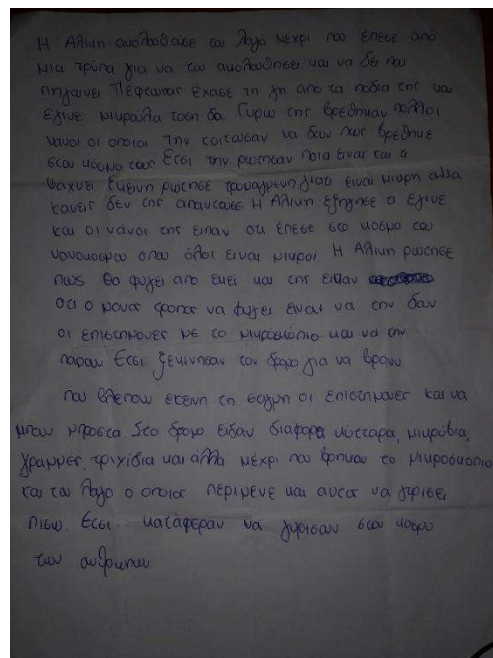 Η Αλικη ακολουθησε τον λαγό μεχρι που επεσε από
μια τρυπα για να τον ακολουθησει και να δει που
πηγαινει Πέφτωντας έχασε τη γη από τα ποδια της και
εγινε μικρουλα τοση δα Γυρω της βρεθηκαν πολλοι
νανοι οι οποιοι την κοιτουσαν να δουν πως βρεθηκε
στον κοσμο τους Ετσι την ρωτησαν ποια ειναι και τι
ψαχνει Εκεινη ρωτησε τρομαγμενη γιατι ειναι μικρη αλλα
κανεις δεν της απαντουσε Η Αλικη εξηγησε τι εγινε
και οι νάνοι της ειπαν οτι επεσε στο κοσμο του
νανοκοσμου οπου όλοι ειναι μικροι Η Αλικη ρωτησε
πως θα φυγει απο εκει και της ειπαν
οτι ο μονος τροπος να φυγει ειναι να την δουν
οι επιστημονες με το μικροσκόπιο και να την
παρουν Ετσι ξεκινησαν τον δρομο για να βρουν
που βλεπουν εκεινη τη στιγμη οι επιστημονες και να
μπουν μπροστα. Στο δρομο είδαν διαφορα κύτταρα, μικρόβια,
γραμμες, τριχίδια και άλλα μέχρι που βρηκαν το μικροσκοπιο
και τον λαγο ο οποιος περιμενε και αυτος να γυρισει
πισω. Ετσι κατάφεραν να γυρισουν στον κοσμο
των ανθρωπων.